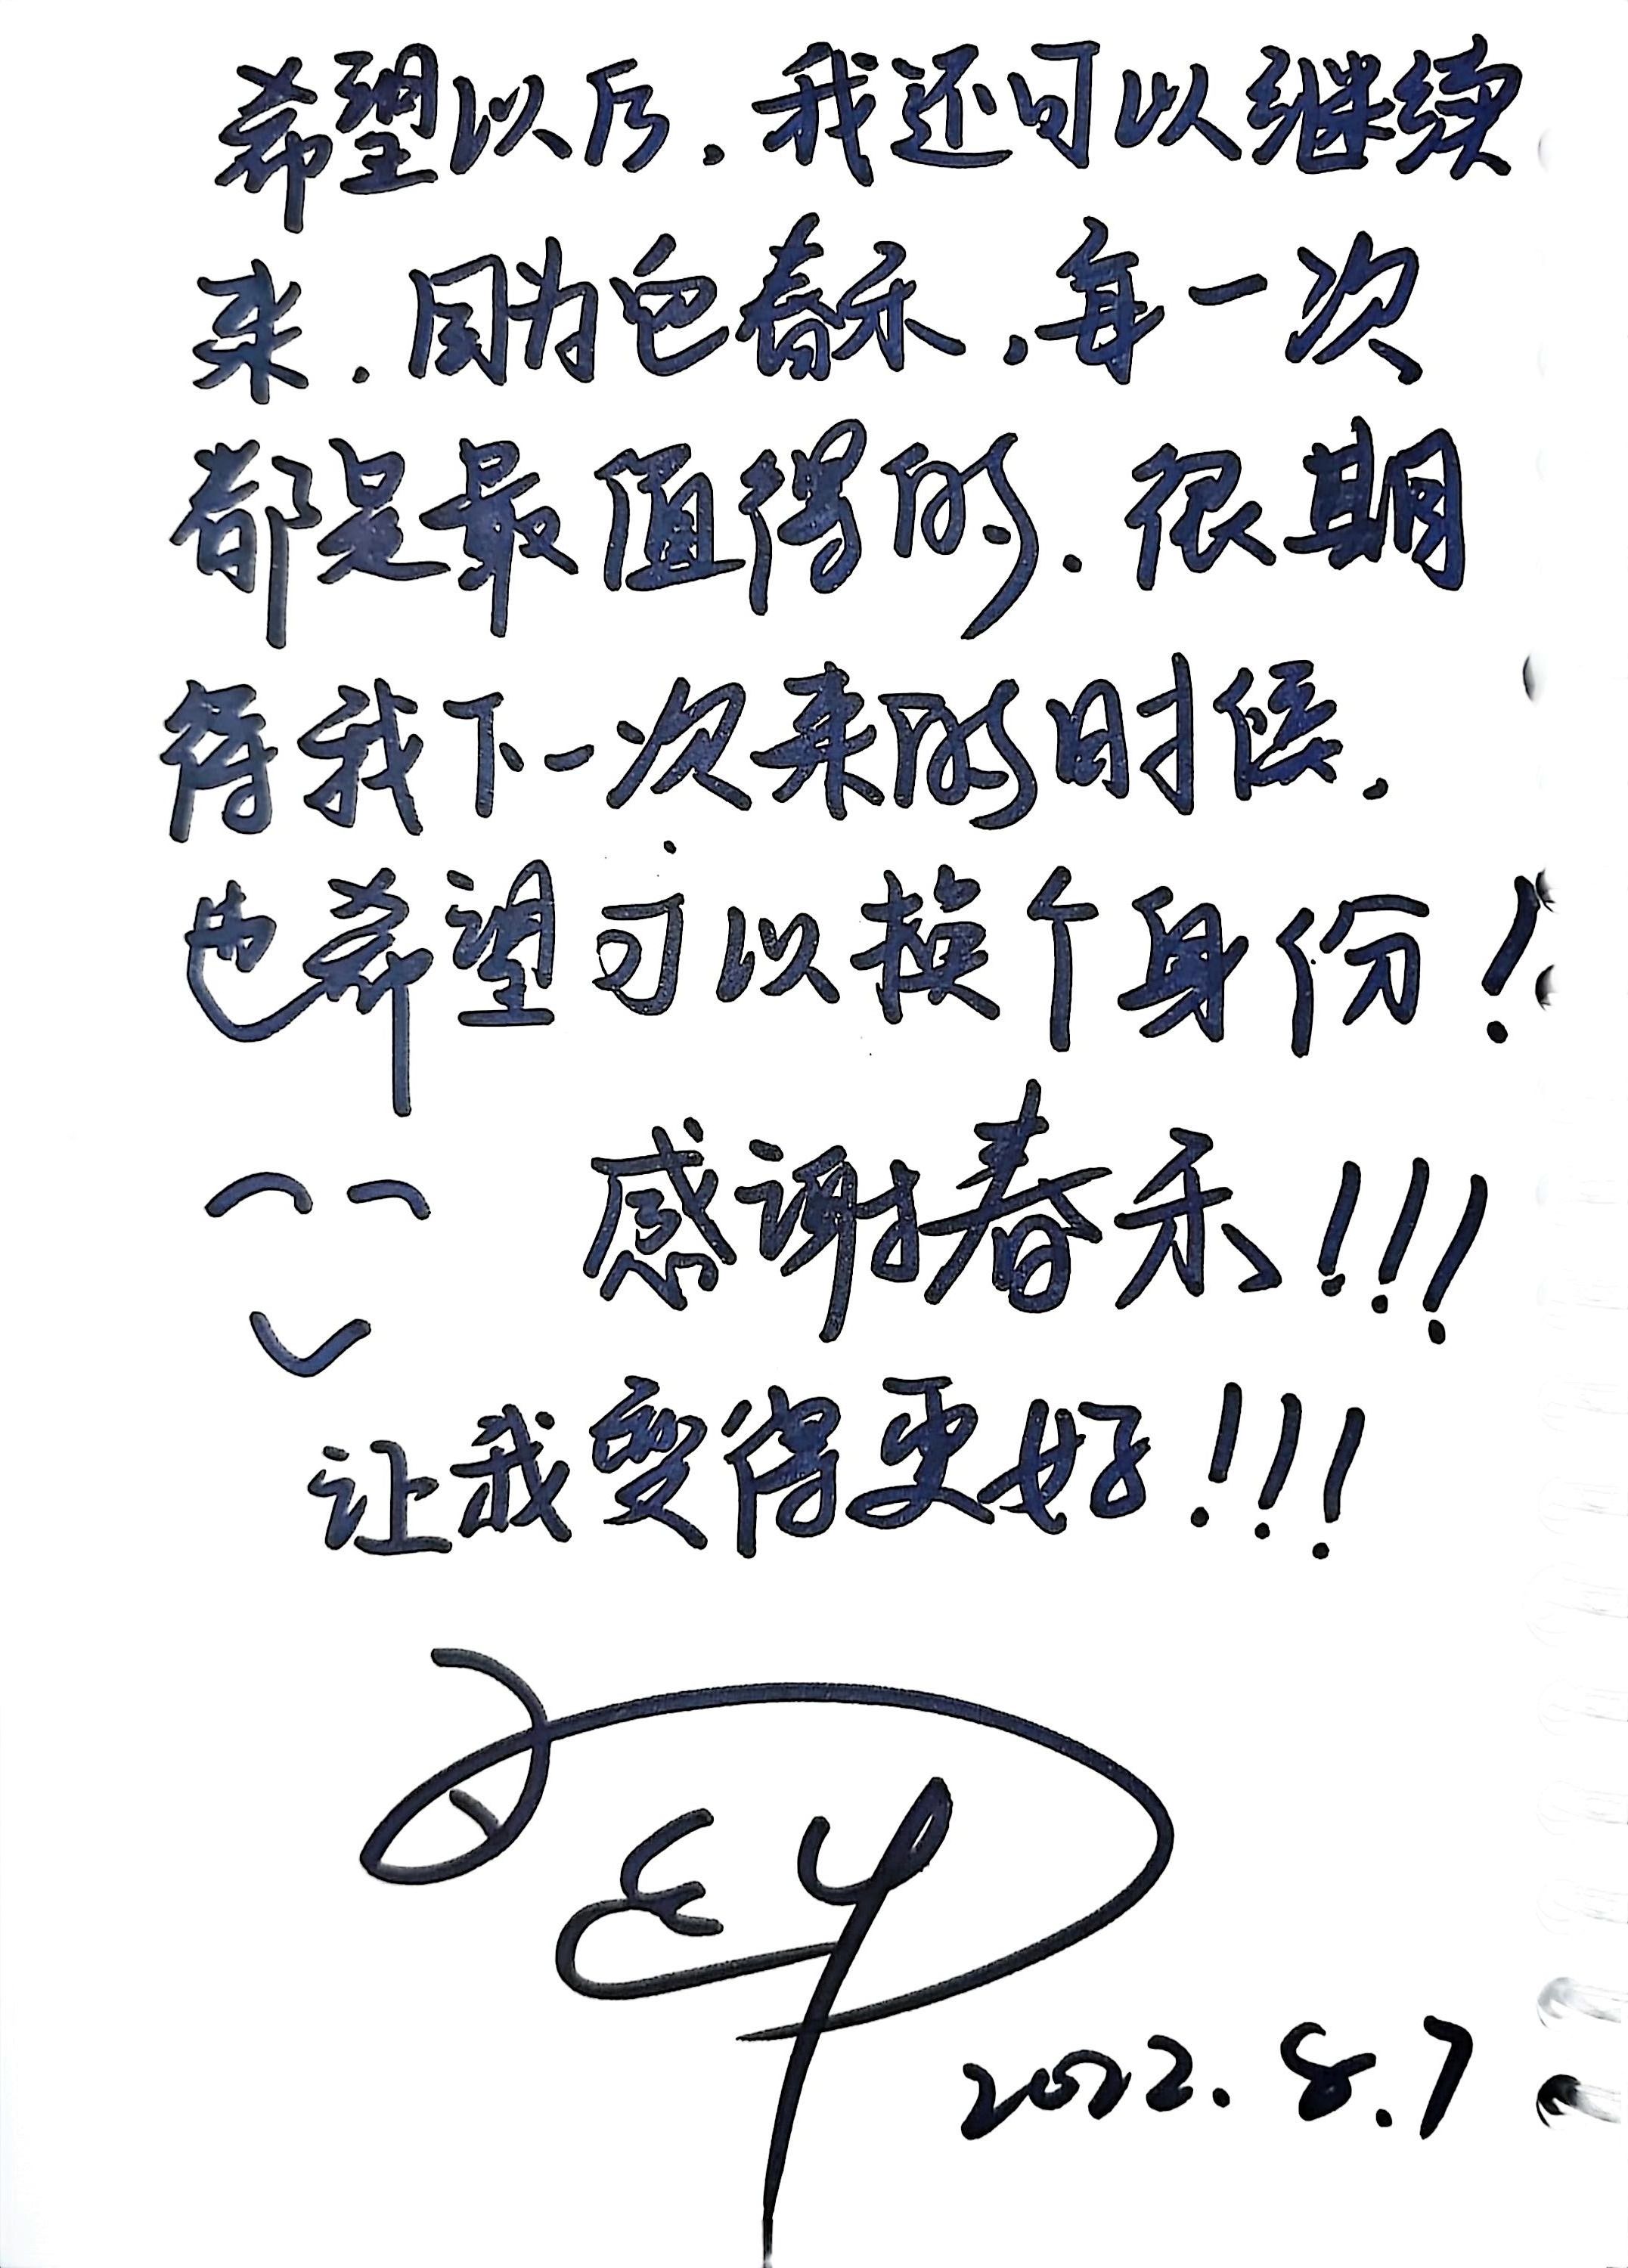 希望以后，我还可以继续
来，因为包春禾，每一次
都是最值得的．很期
待我下一次来的时候，
也希望可以换个身份！
感谢春禾！！！
让我变得更好！！！
2022.8.7